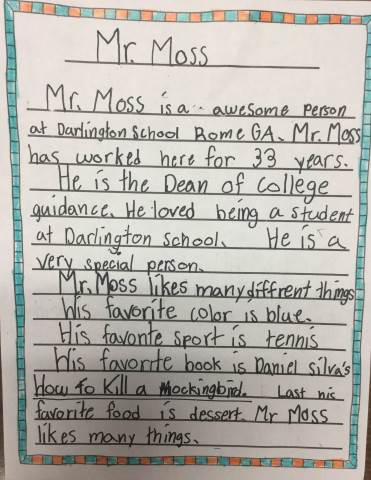 Mr. Moss
Mr. Moss is a awesome person
at Darlington School Rome GA. Mr. Moss
has worked here for 33 years.
He is the Dean of college
guidance. He loved being a student
at Darlington School. He is a
very special person.
Mr. Moss likes many diffrent things
his favorite color is blue.
His favorite sport is tennis
his favorite book is Daniel Silva's
How to Kill a Mockingbird. Last his
favorite food is dessert. Mr Moss
likes many things.